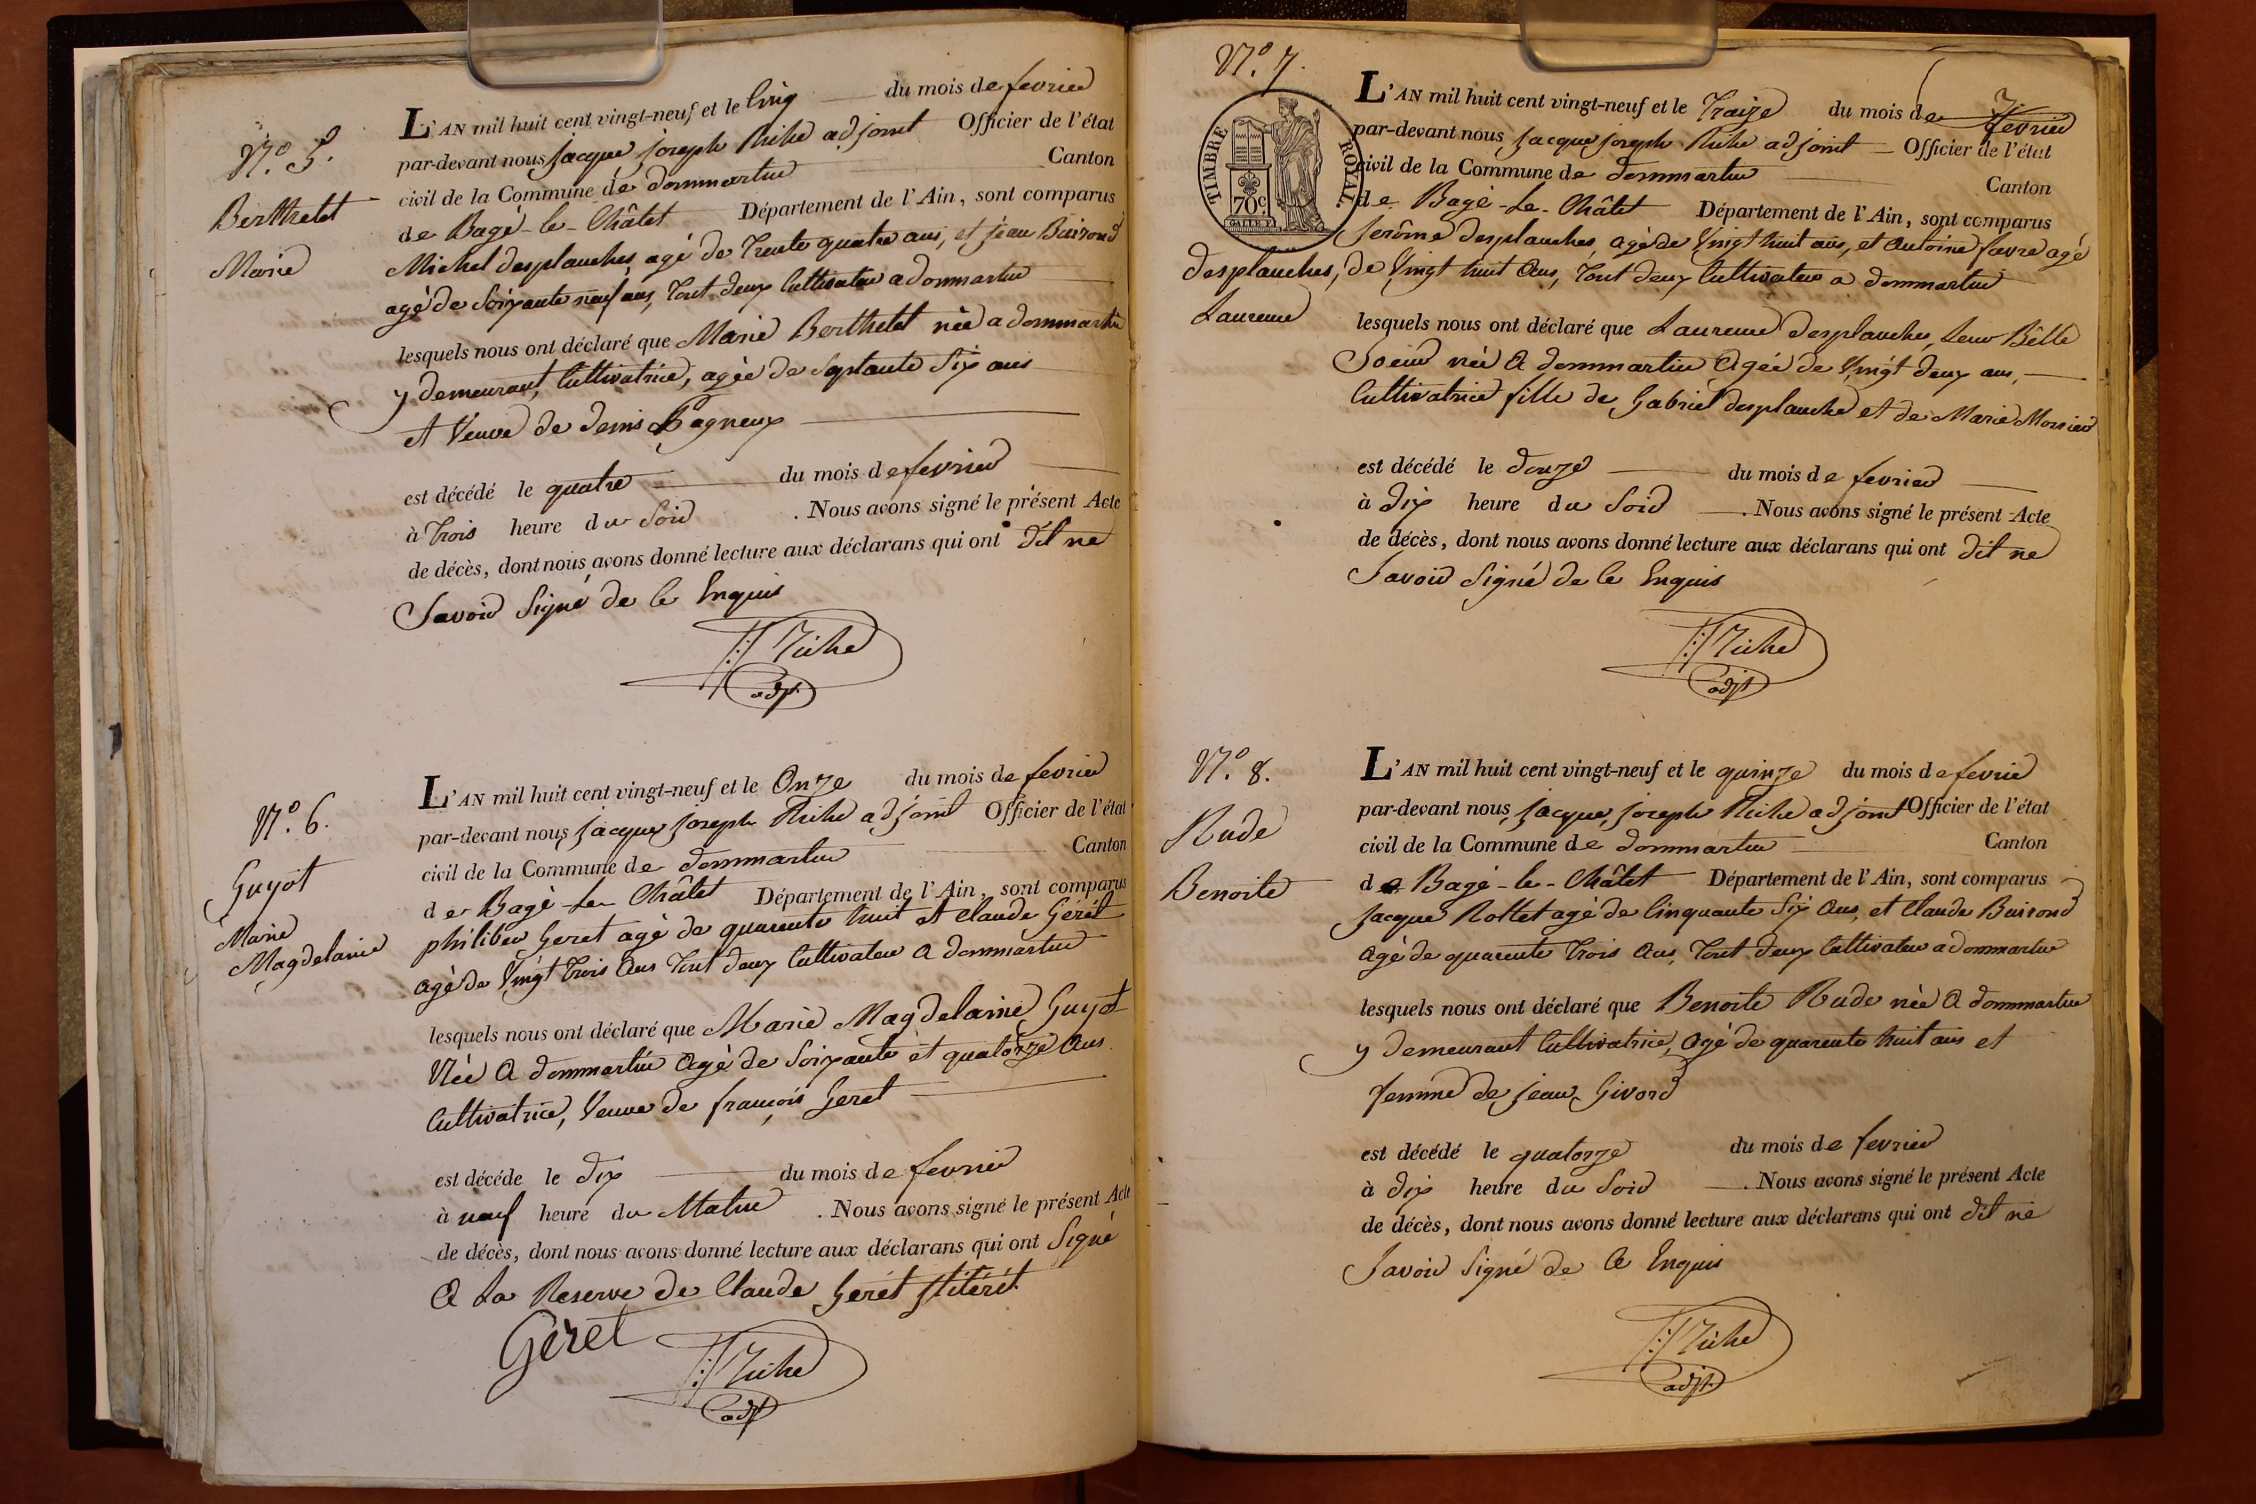 N.° 5.
Berthelet
Marie
L'AN mil huit cent vingt-neuf et le Cinq du mois de fevrier
par-devant nous Jacque joseph Riche adjoint Officier de l'état
civil de la Commune de dommartin Canton
de Bagé-le-Châtel Département de l'Ain, sont comparus
Michel desplanches agé de Trente quatre ans, et jean Buirond
agé de Soixante neuf ans, Tout deux Cultivateur a dommartin
lesquels nous ont déclaré que Marie Berthelet née a dommartin
y demeurant, Cultivatrice, agée de Septante Six ans
et Veuve de denis Pagneux
est décédé le quatre du mois de fevrier
à Trois heure du Soir . Nous avons signé le présent Acte
de décès, dont nous avons donné lecture aux déclarans qui ont dit ne
Savoir Signé de Ce Enquis
Riche
adjt
N.° 6.
Guyot
Marie
Magdelaine
L'AN mil huit cent vingt-neuf et le Onze du mois de fevrier
par-devant nous Jacque joseph Riche adjoint Officier de l'état
civil de la Commune de dommartin Canton
de Bagé-le-Châtel Département de l'Ain, sont comparus
philiber Geret agé de quarente huit et Claude Gerét
agé de Vingt Trois Ans Tout deux Cultivateur a dommartin
lesquels nous ont déclaré que Marie Magdelaine Guyot
Née a dommartin Agé de Soixante et quatorze Ans
Cultivatrice, Veuve de françois Geret
est décéde le dix du mois de fevrier
à neuf heure du Matin . Nous avons signé le présent Acte
de décès, dont nous avons donné lecture aux déclarans qui ont Signé
A La Reserve de Claude Gerét Illitérét
Géret
Riche
adjt
N.° 7.
TIMBRE ROYAL
70c.
desplanches,
Laurence
L'AN mil huit cent vingt-neuf et le Traize du mois de fevrier
par-devant nous Jacque joseph Riche adjoint Officier de l'état
civil de la Commune de dommartin Canton
de Bagé-Le-Châtel Département de l'Ain, sont comparus
Jerôme desplanches agé de Vingt huit ans, et Antoine favre agé
de Vingt huit Ans, Tout deux Cultivateur a dommartin
lesquels nous ont déclaré que Laurence desplanches, Leur Bélle
Soeur née A dommartin Agée de Vingt deux ans,
Cultivatrice fille de Gabriel desplanche et de Marie
est décédé le douze du mois de fevrier
à dix heure du Soir . Nous avons signé le présent Acte
de décès, dont nous avons donné lecture aux déclarans qui ont dit ne
Savoir Signé de Ce Enquis
Riche
adjt
N.° 8.
Rude
Benoite
L'AN mil huit cent vingt-neuf et le quinze du mois de fevrier
par-devant nous Jacque joseph Riche adjoint Officier de l'état
civil de la Commune de dommartin Canton
de Bagé-le-Châtel Département de l'Ain, sont comparus
Jacque Rollet agé de Cinquante Six Ans, et Claude Buirond
Agé de quarente Trois Ans, Tout deux Cultivateur a dommartin
lesquels nous ont déclaré que Benoite Rude née A dommartin
y demeurant Cultivatrice, Agé de quarente huit ans et
femme de jean Givord
est décédé le quatorze du mois de fevrier
à dix heure du Soir . Nous avons signé le présent Acte
de décès, dont nous avons donné lecture aux déclarans qui ont dit ne
Savoir Signé de Ce Enquis
Riche
adjt